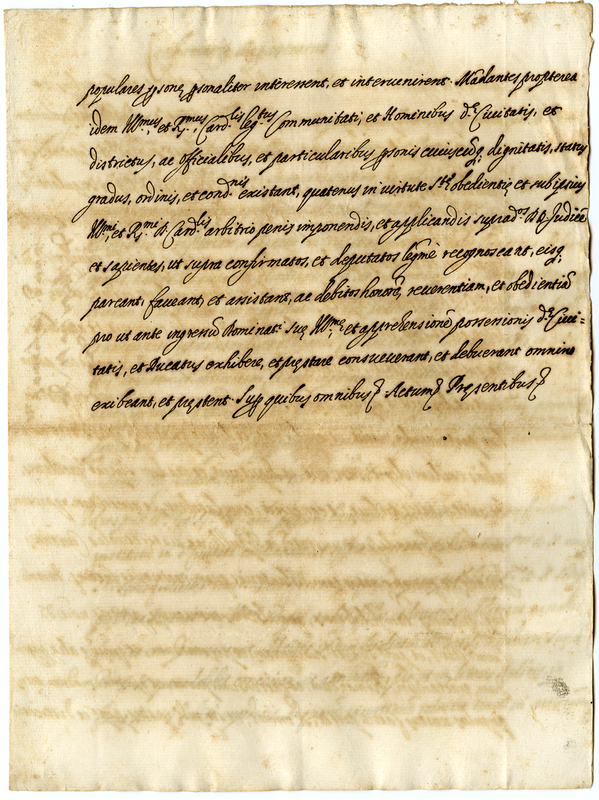 populares psone psonaliter interessent, et intervenirent. Mādantes propterea
idem Illmus, et Rmus Cardlis legtus Communitati, et Hominibus de Civitatis, et
districtus, ac officialibus, et particularibus psonis cuiuscūq; dignitatis, status
gradus, ordinis, et condnis existant, quatenus in virtute Ste obedientię et sub ipsius
Illmi, et Rmi D. Cardlis arbitrio penis imponendis, et applicandis suprados DD. Judicē
et sapientes, ut supra confirmatos, et deputatos legmē recognoscant, eisq;
pareant, faveant, et assistant, ac debitos honorē, reverentiam, et obedientiā
pro ut ante ingressū Dominatis suę Illme, et apprehensionē possessionis de Civi=
tatis, et Ducatus exhibere, et pręstare consueverant, et debuerant omnino
exibeant, et pręstent. Sup quibus omnibus Actum Pręsentibus